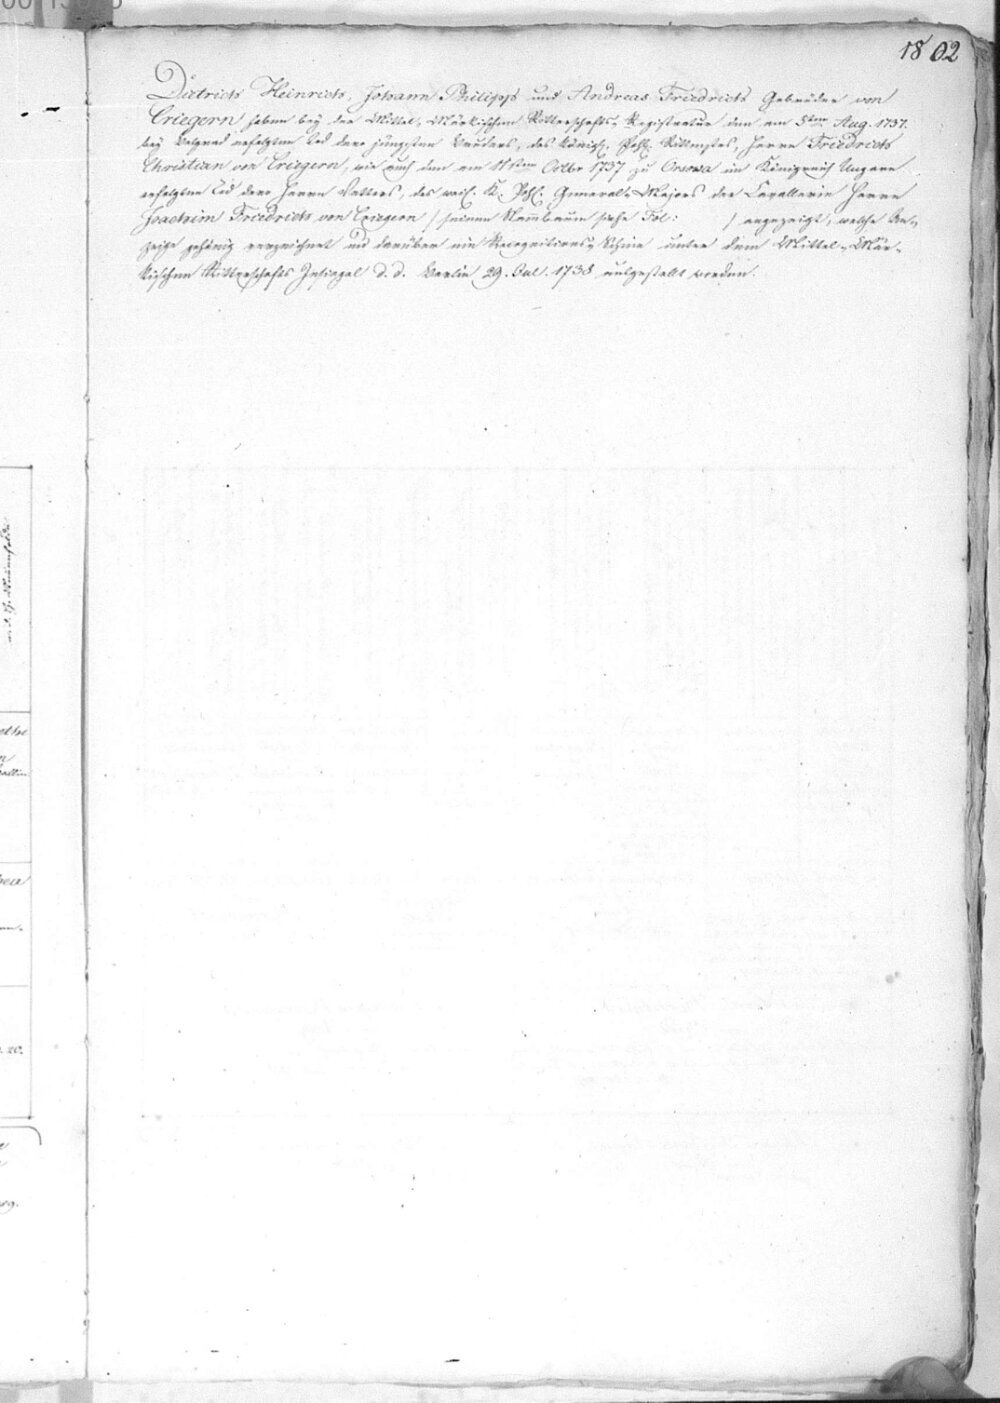 1802
Dietrich Heinrich, Johann Philipp und Andreas Friedrich Gebrüder von
Criegern haben bey der Mittel-Märkischen Ritterschafts-Registratur den am 5ten Aug. 1737.
bey Belgrad erfolgten Tod dero jüngsten Bruders, des Königl. Pohl. Rittmstrs, Herrn Friedrich
Christian von Criegern, wie auch den am 11ten Octbr 1737 zu Orsova im Königreich Ungarn
erfolgten Tod dero Herrn Vatters, des weil. K. Pohl. General-Majors der Cavallerie Herrn
Joachim Friedrich von Criegern / seinen Stammbaum siehe Fol: / angezeigt, welche An-
zeige gehörig verzeichnet und darüber ein Recognitions-Schein unter dem Mittel-Mär-
kischen Ritterschafts Insiegel d. d. Berlin 29. Jul. 1738 ausgestellt worden.